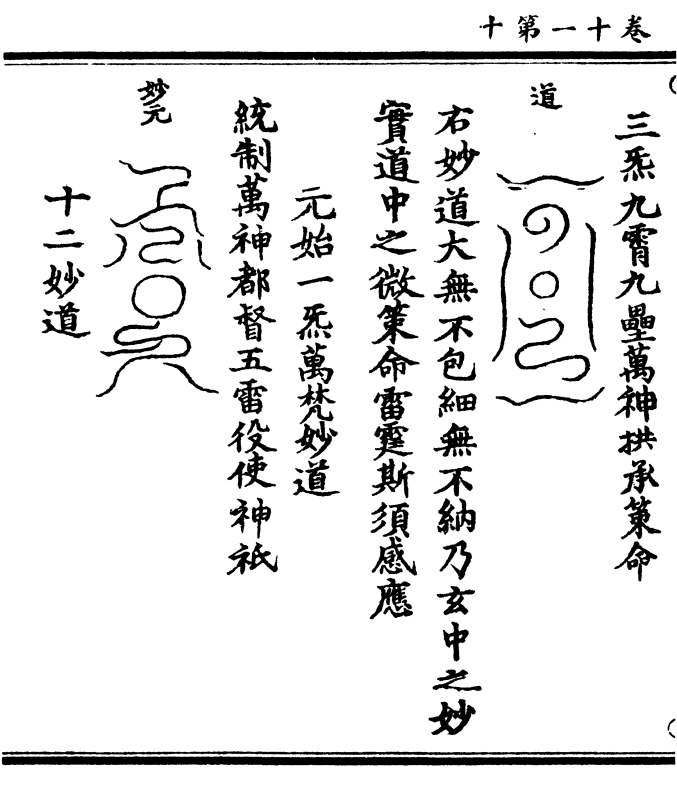 卷十一第十
三炁九霄九壘萬神拱承策命
道
右妙道大無不包細無不納乃玄中之妙
實道中之微策命雷霆斯須感應
元始一炁萬梵妙道
統制萬神都督五雷役使神祇
妙元
十二妙道